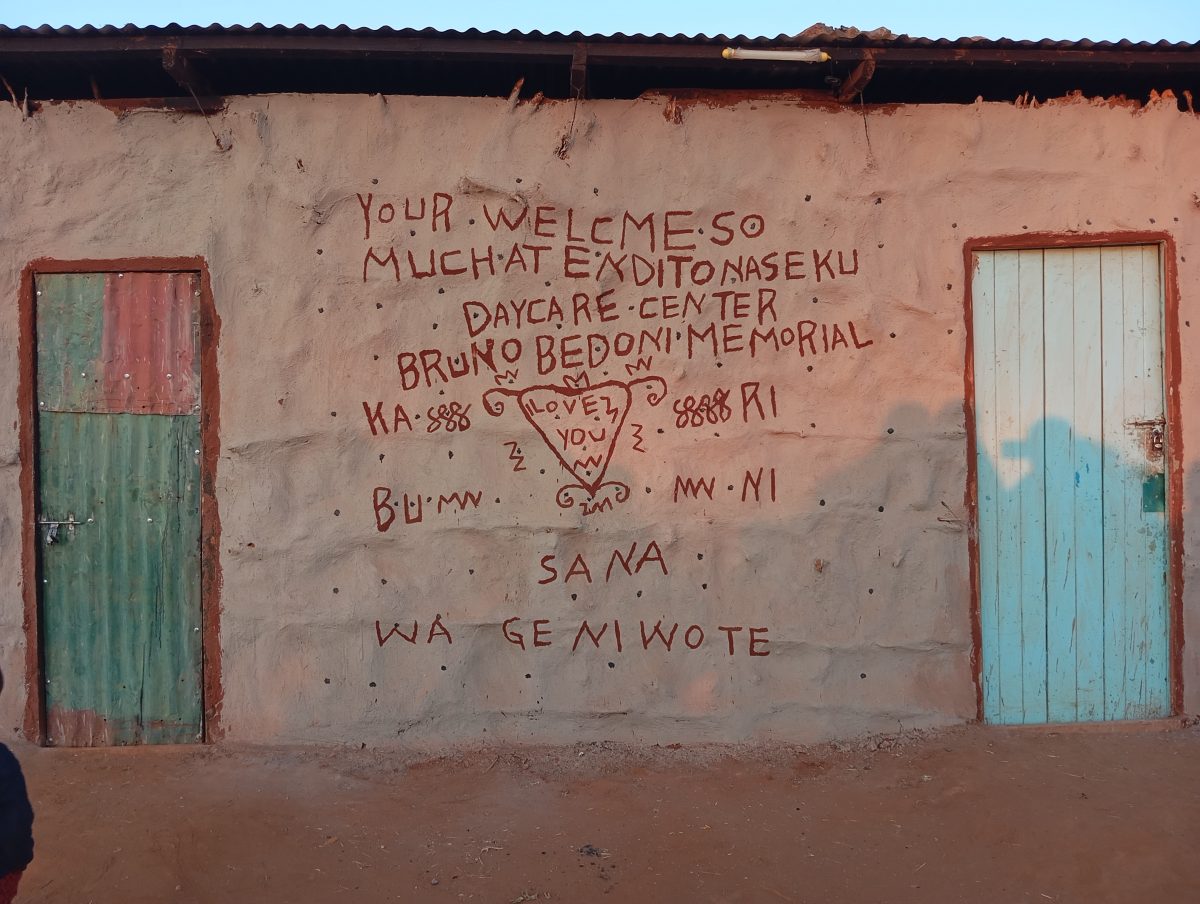 YOUR WELCME SO
MUCH AT ENDITO NASEKU
DAYCARE CENTER
BRUNO BEDONI MEMORIAL
KA RI
I LOVE
YOU
BU NI
SANA
WA GENI WOTE